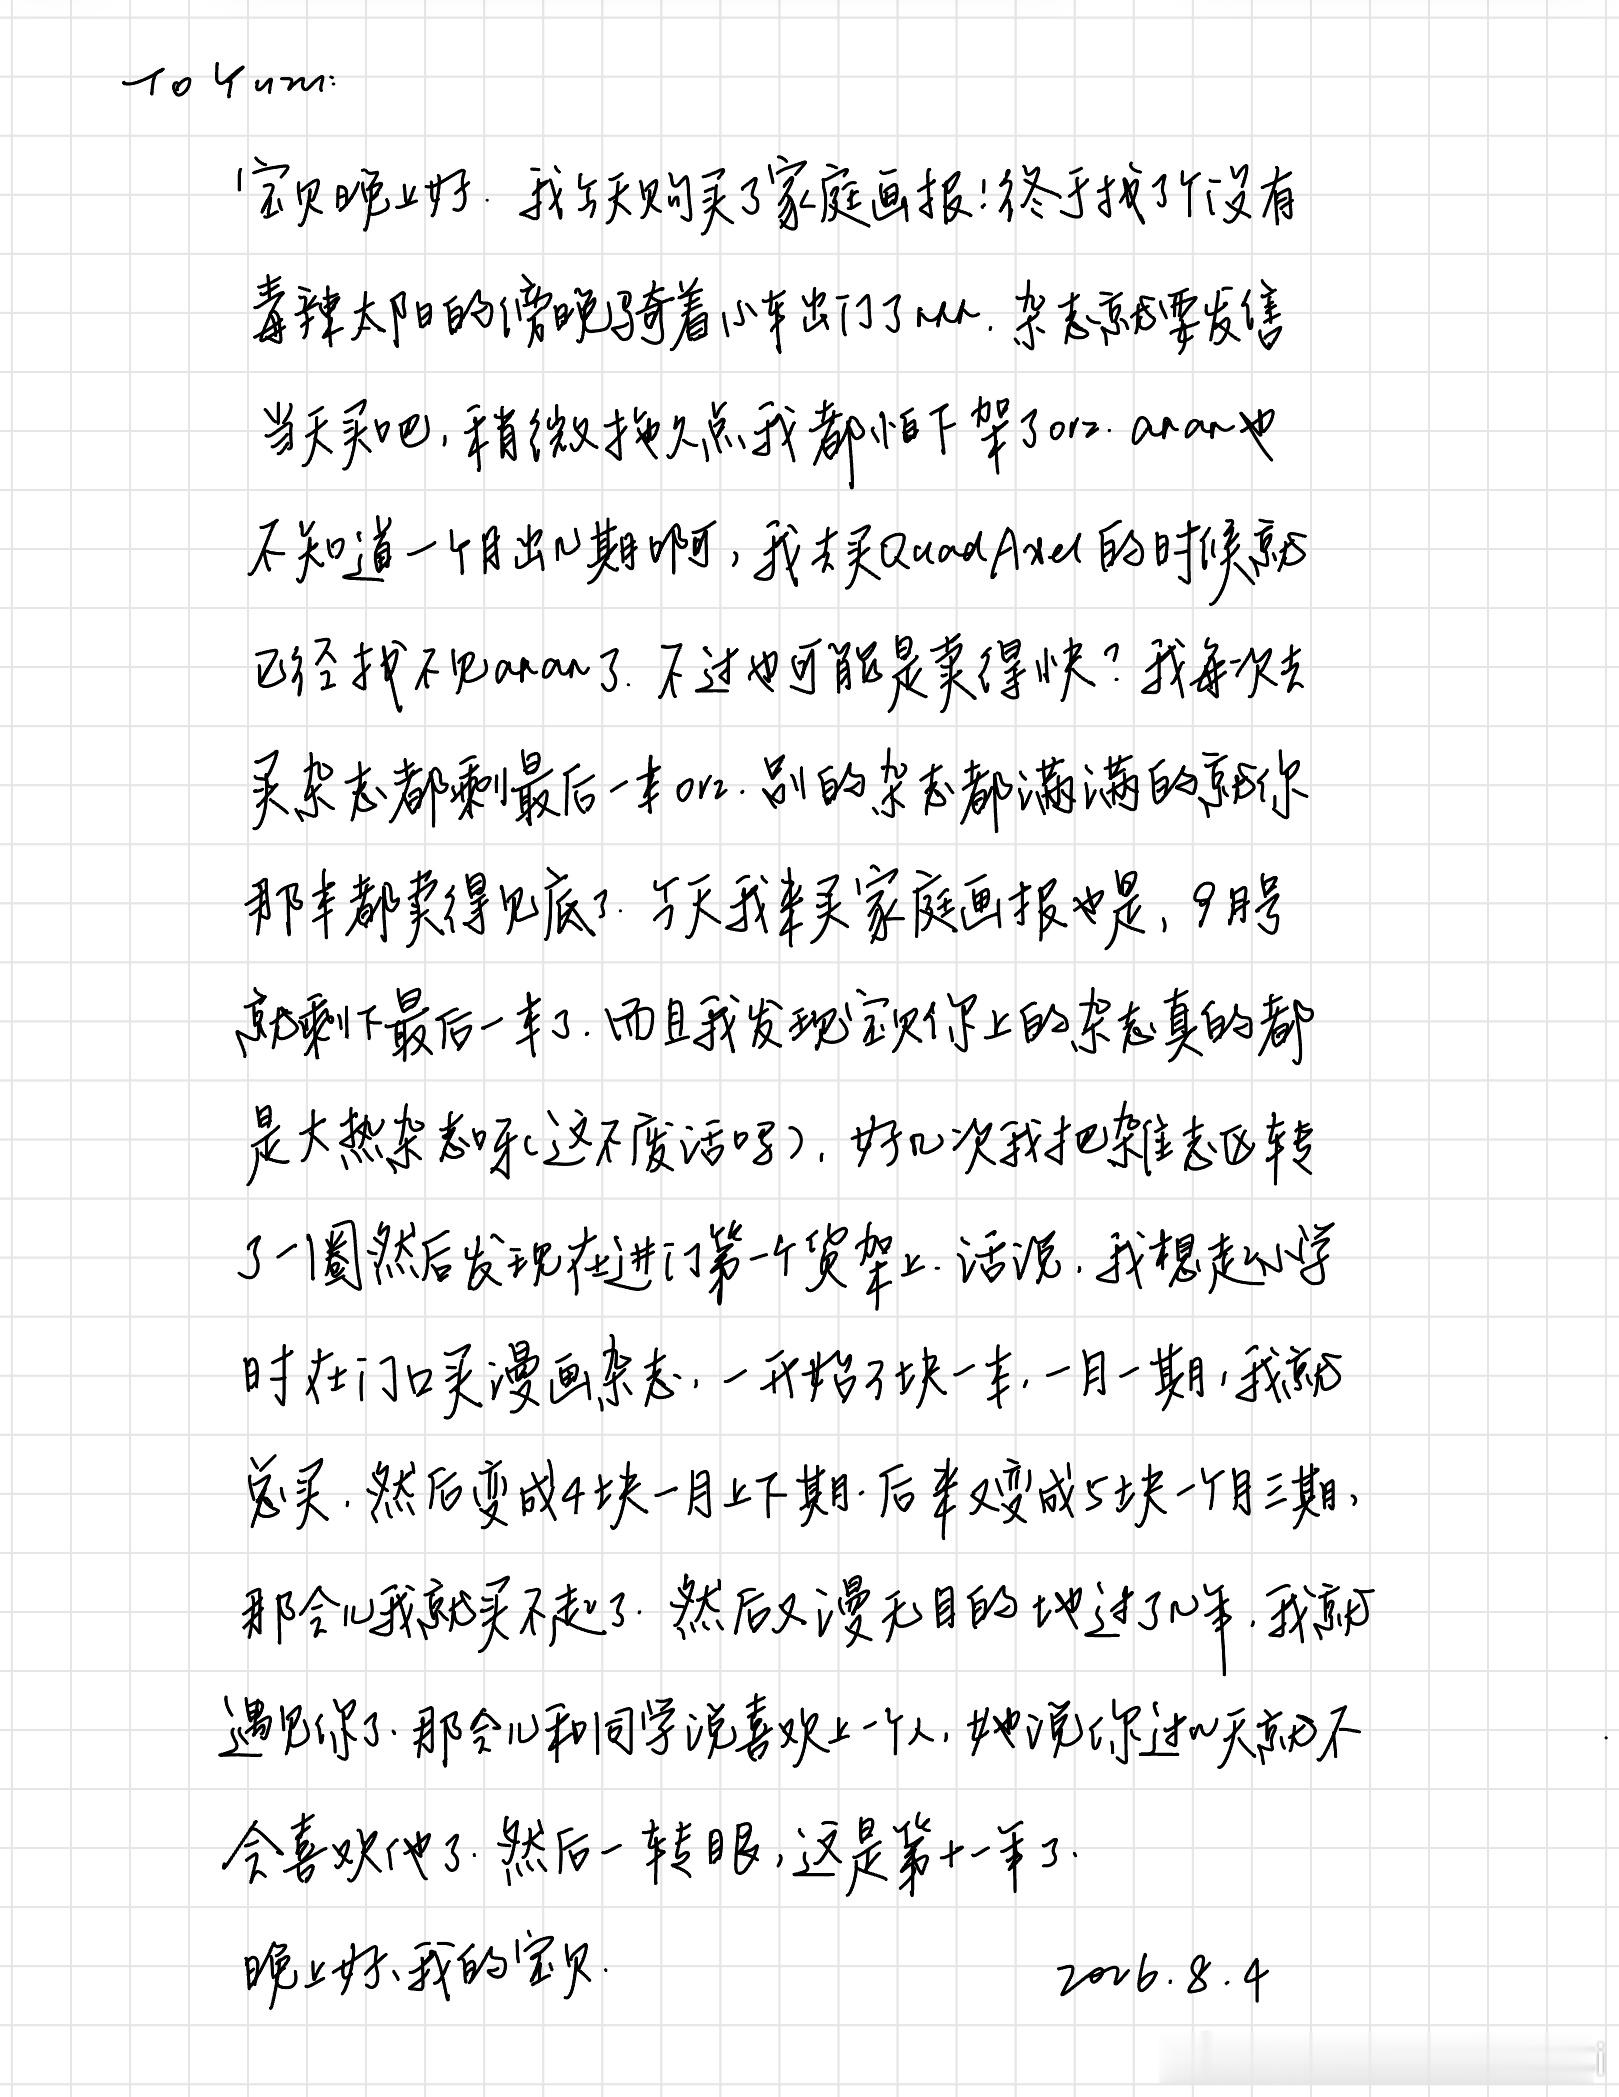 To Yuzu:
宝贝晚上好. 我今天购买了家庭画报!终于找了个没有
毒辣太阳的傍晚骑着小车出门了nnn. 杂志就要发售
当天买吧,稍微拖久点我都怕下架了orz. anan也
不知道一个月出几期啊,我去买QuadAxel的时候就
已经找不见anan了. 不过也可能是卖得快?我每次去
买杂志都剩最后一本orz. 别的杂志都满满的就你
那本都卖得见底了. 今天我来买家庭画报也是,9月号
就剩下最后一本了. 而且我发现宝贝你上的杂志真的都
是大热杂志呀(这不废话吗). 好几次我把杂志区转
了一圈然后发现在进门第一个货架上. 话说,我想起小学
时在门口买漫画杂志,一开始3块一本,一月一期,我就
总买. 然后变成4块一月上下期. 后来又变成5块一个月三期,
那会儿我就买不起了. 然后又漫无目的地过了几年. 我就
遇见你了. 那会儿和同学说喜欢上一个人,她说你过几天就不
会喜欢他了. 然后一转眼,这是第十一年了.
晚上好、我的宝贝. 2026.8.4